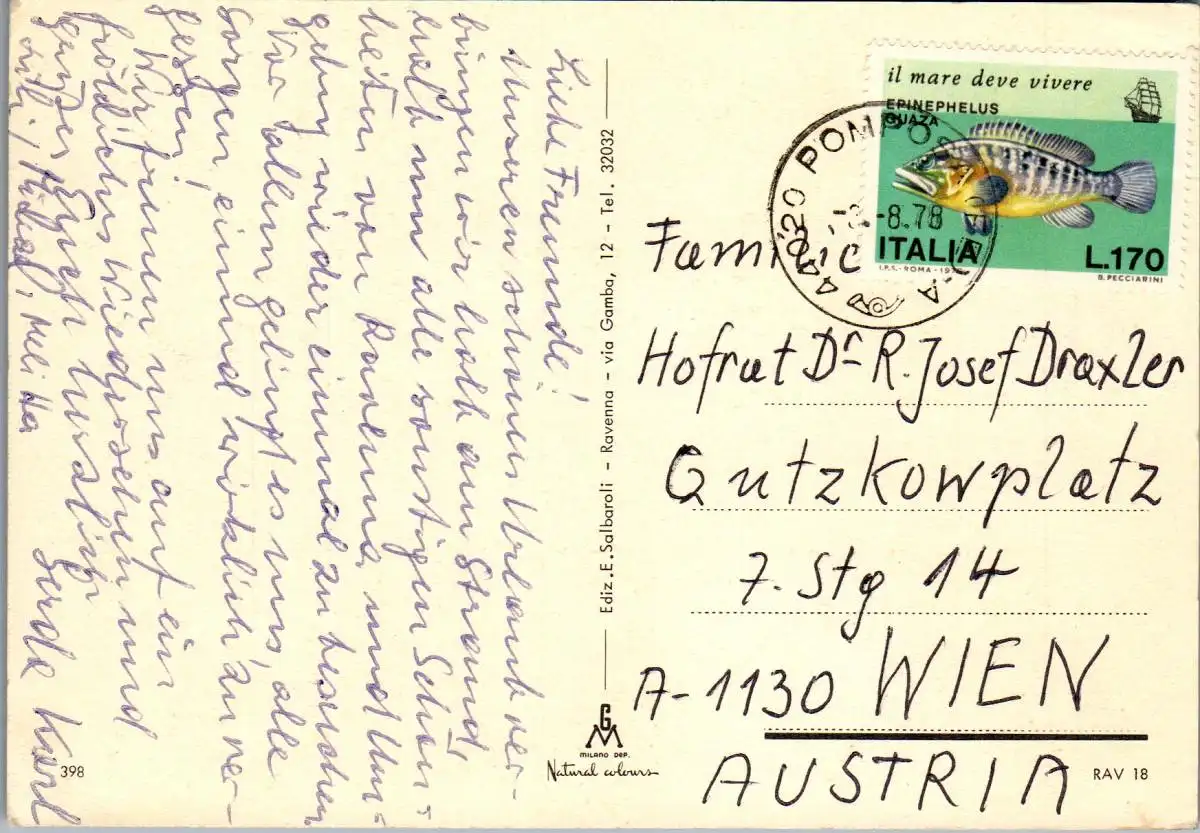 Liebe Freunde!
Unseren schönen Urlaub ver-
bringen wir halb am Strand,
halb um alle sonstigen Schön-
heiten von Ravenna und Um-
gebung wieder einmal zu besuchen.
Vor allem gelingt es uns, alle
Sorgen einmal wirklich zu ver-
gessen!
Wir freuen uns auf ein
fröhliches Wiedersehen und
grüßen Euch herzlichst
Gerda Karl
Michael, Melitta
398
Ediz. E. Salbaroli - Ravenna - via Gamba, 12 - Tel. 32032
G
M
MILANO DEP.
Natural colours
il mare deve vivere
EPINEPHELUS
GUAZA
ITALIA
L.170
I.P.S.-ROMA-197
B. PECCIARINI
44020 POMPOSA
-8.78
Familie
Hofrat Dr R. Josef Draxler
Gutzkowplatz
7. Stg 14
A-1130 WIEN
AUSTRIA
RAV 18